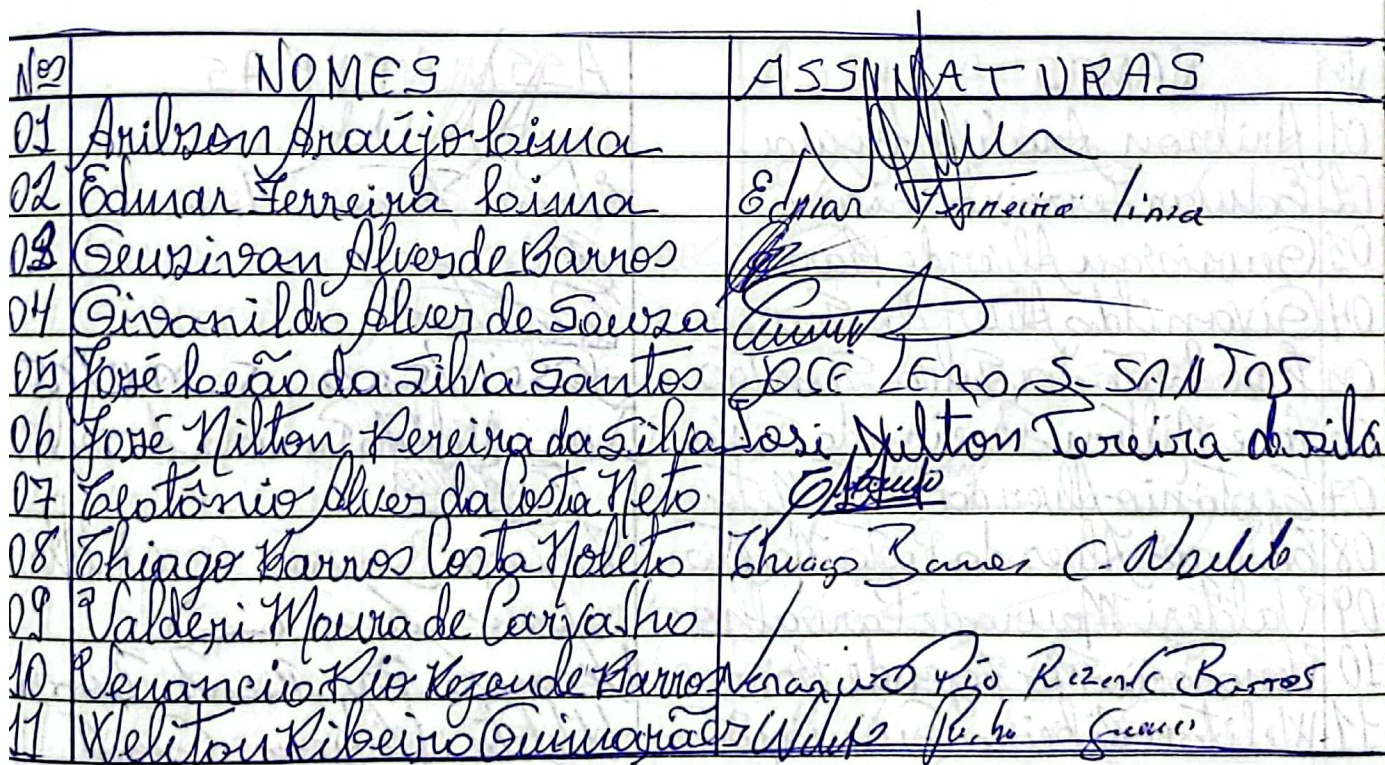 Nos NOMES ASSINATURAS
01 Arilson Araújo Lima
02 Edmar Ferreira Lima Edmar Ferreira lima
03 Geusivan Alves de Barros
04 Givanildo Alves de Souza
05 José Leão da Silva Santos JOSÉ LEÃO S. SANTOS
06 José Nilton Pereira da Silva José Nilton Pereira da Silva
07 Teotônio Alves da Costa Neto
08 Thiago Barros Costa Noleto Thiago Barros C. Noleto
09 Valderi Moura de Carvalho
10 Venancio Pio Rezende Barros Venancio Pio Rezende Barros
11 Weliton Ribeiro Guimarães